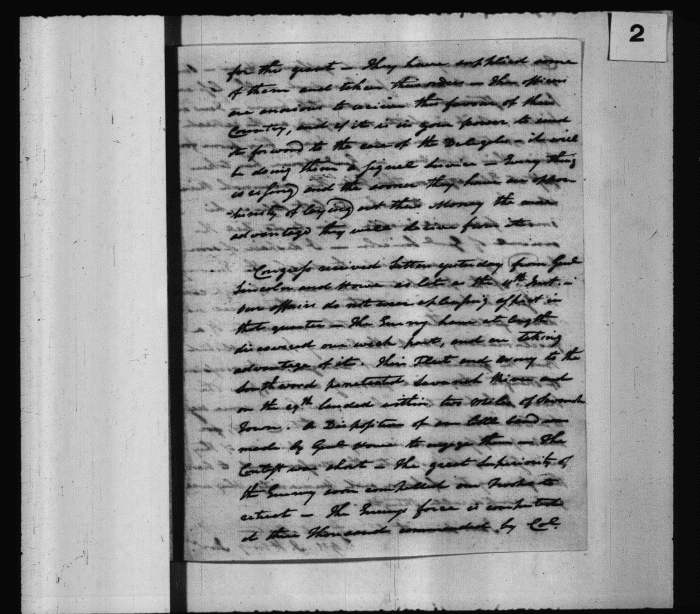 2
for the grant – They have supplied some
of them and taken themselves – The officers
are anxious to receive the favour of their
Country, and if it is in your power to send
it forward to the care of the Delegates – it will
be doing them a signal service – Every thing
is rising and the sooner they have an oppor
tunity of laying out their Money the more
advantage they will derive from it
Congress received Letters yesterday from Genl
Lincoln and Howe as late as the inst. –
our affairs do not wear a pleasing aspect in
that quarter – The Enemy have at length
discovered our weak part, and are taking
advantage of it. Their Fleet and Army to the
Southward penetrated Savanah River and
on the 29th landed within two Miles of Savanah
Town. A Disposition of our little band was
made by Genl Howe to engage them – The
Contest was short – The great Superiority of
the Enemy soon compelled our Troops to
retreat – The Enemys force is computed
at three Thousand commanded by Col.